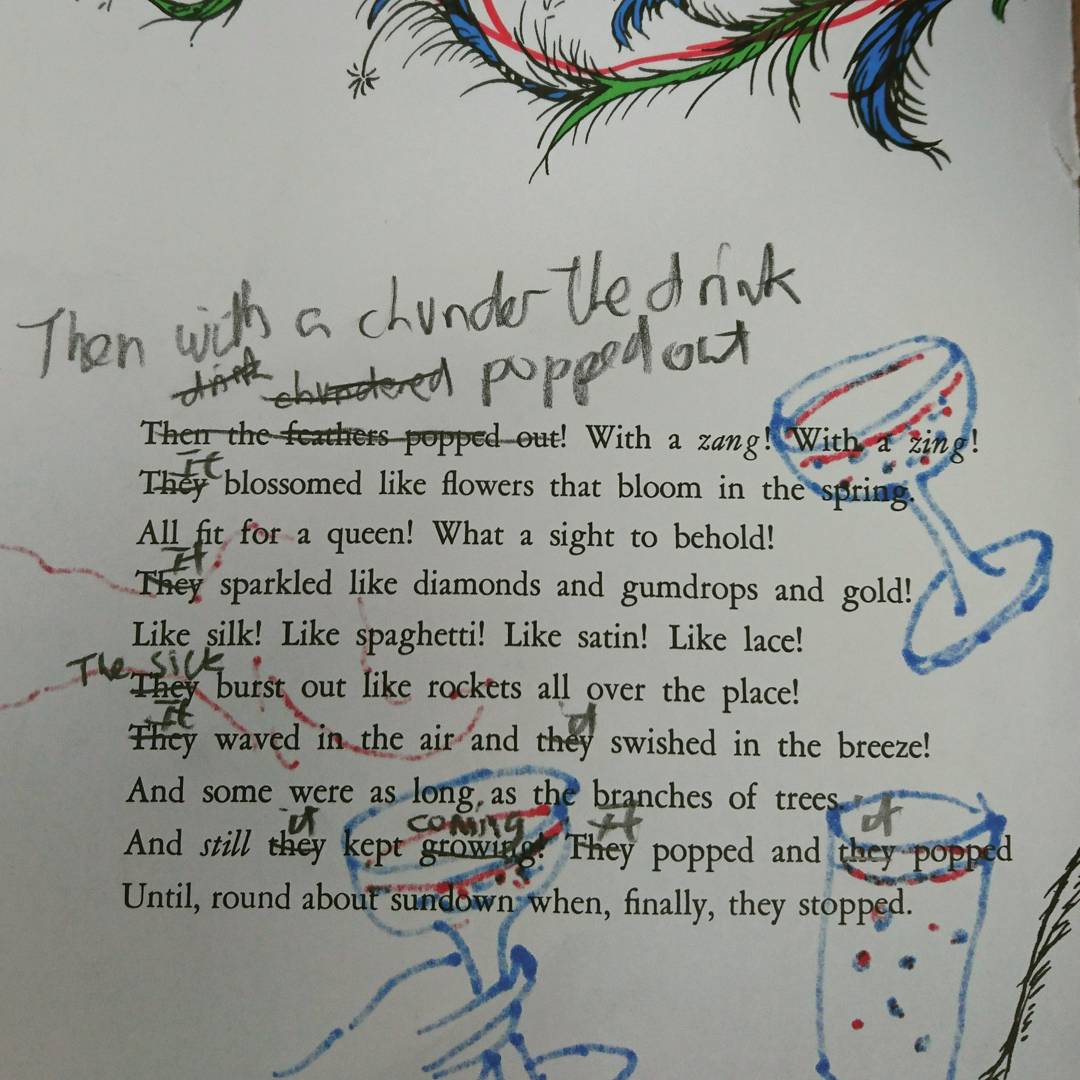 Then with a chunder the drink
drink chundered popped out
Then the feathers popped out! With a zang! With a zing!
It
They blossomed like flowers that bloom in the spring.
All fit for a queen! What a sight to behold!
It
They sparkled like diamonds and gumdrops and gold!
Like silk! Like spaghetti! Like satin! Like lace!
The sick
They burst out like rockets all over the place!
It it
They waved in the air and they swished in the breeze!
And some were as long, as the branches of trees.
it coming It it
And still they kept growing! They popped and they popped
Until, round about sundown when, finally, they stopped.